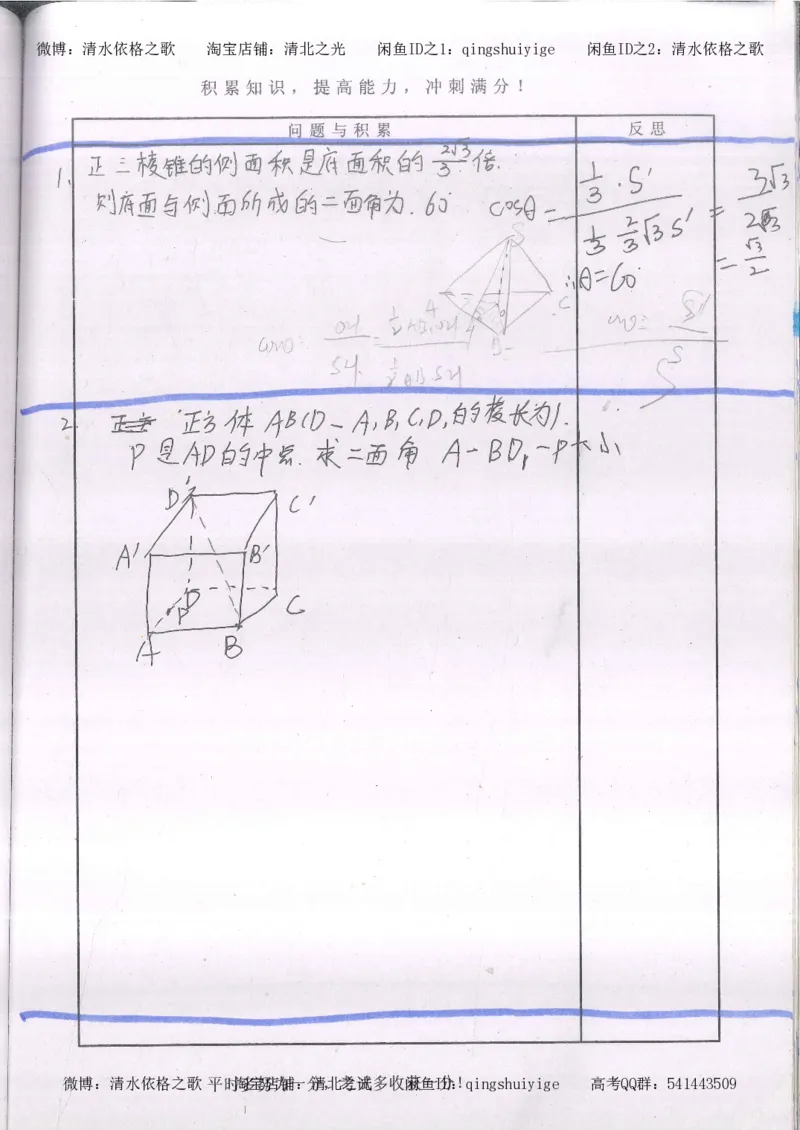 微博：清水依格之歌 淘宝店铺：清北之光 闲鱼ID之1：qingshuiyige 闲鱼ID之2：清水依格之歌
积累知识，提高能力，冲刺满分！
问题与积累 反思
1. 正三棱锥的侧面积是底面积的 2√3/3 倍.
则底面与侧面所成的二面角为. 60°
cosθ = (1/3 · S′)/(1/3 · 2/3 √3 S′) = 3√3/2√3
= √3/2
∴θ=60°
S
C
B
OH/SH = (1/2 AB·OH)/(1/2 AB·SH)
S′/S
2. 正方体 ABCD-A₁B₁C₁D₁的棱长为1.
P是AD的中点. 求二面角 A-BD₁-P大小
D′ C′
A′ B′
D
P C
A B
微博：清水依格之歌 平时 闲鱼ID：qingshuiyige 高考QQ群：541443509